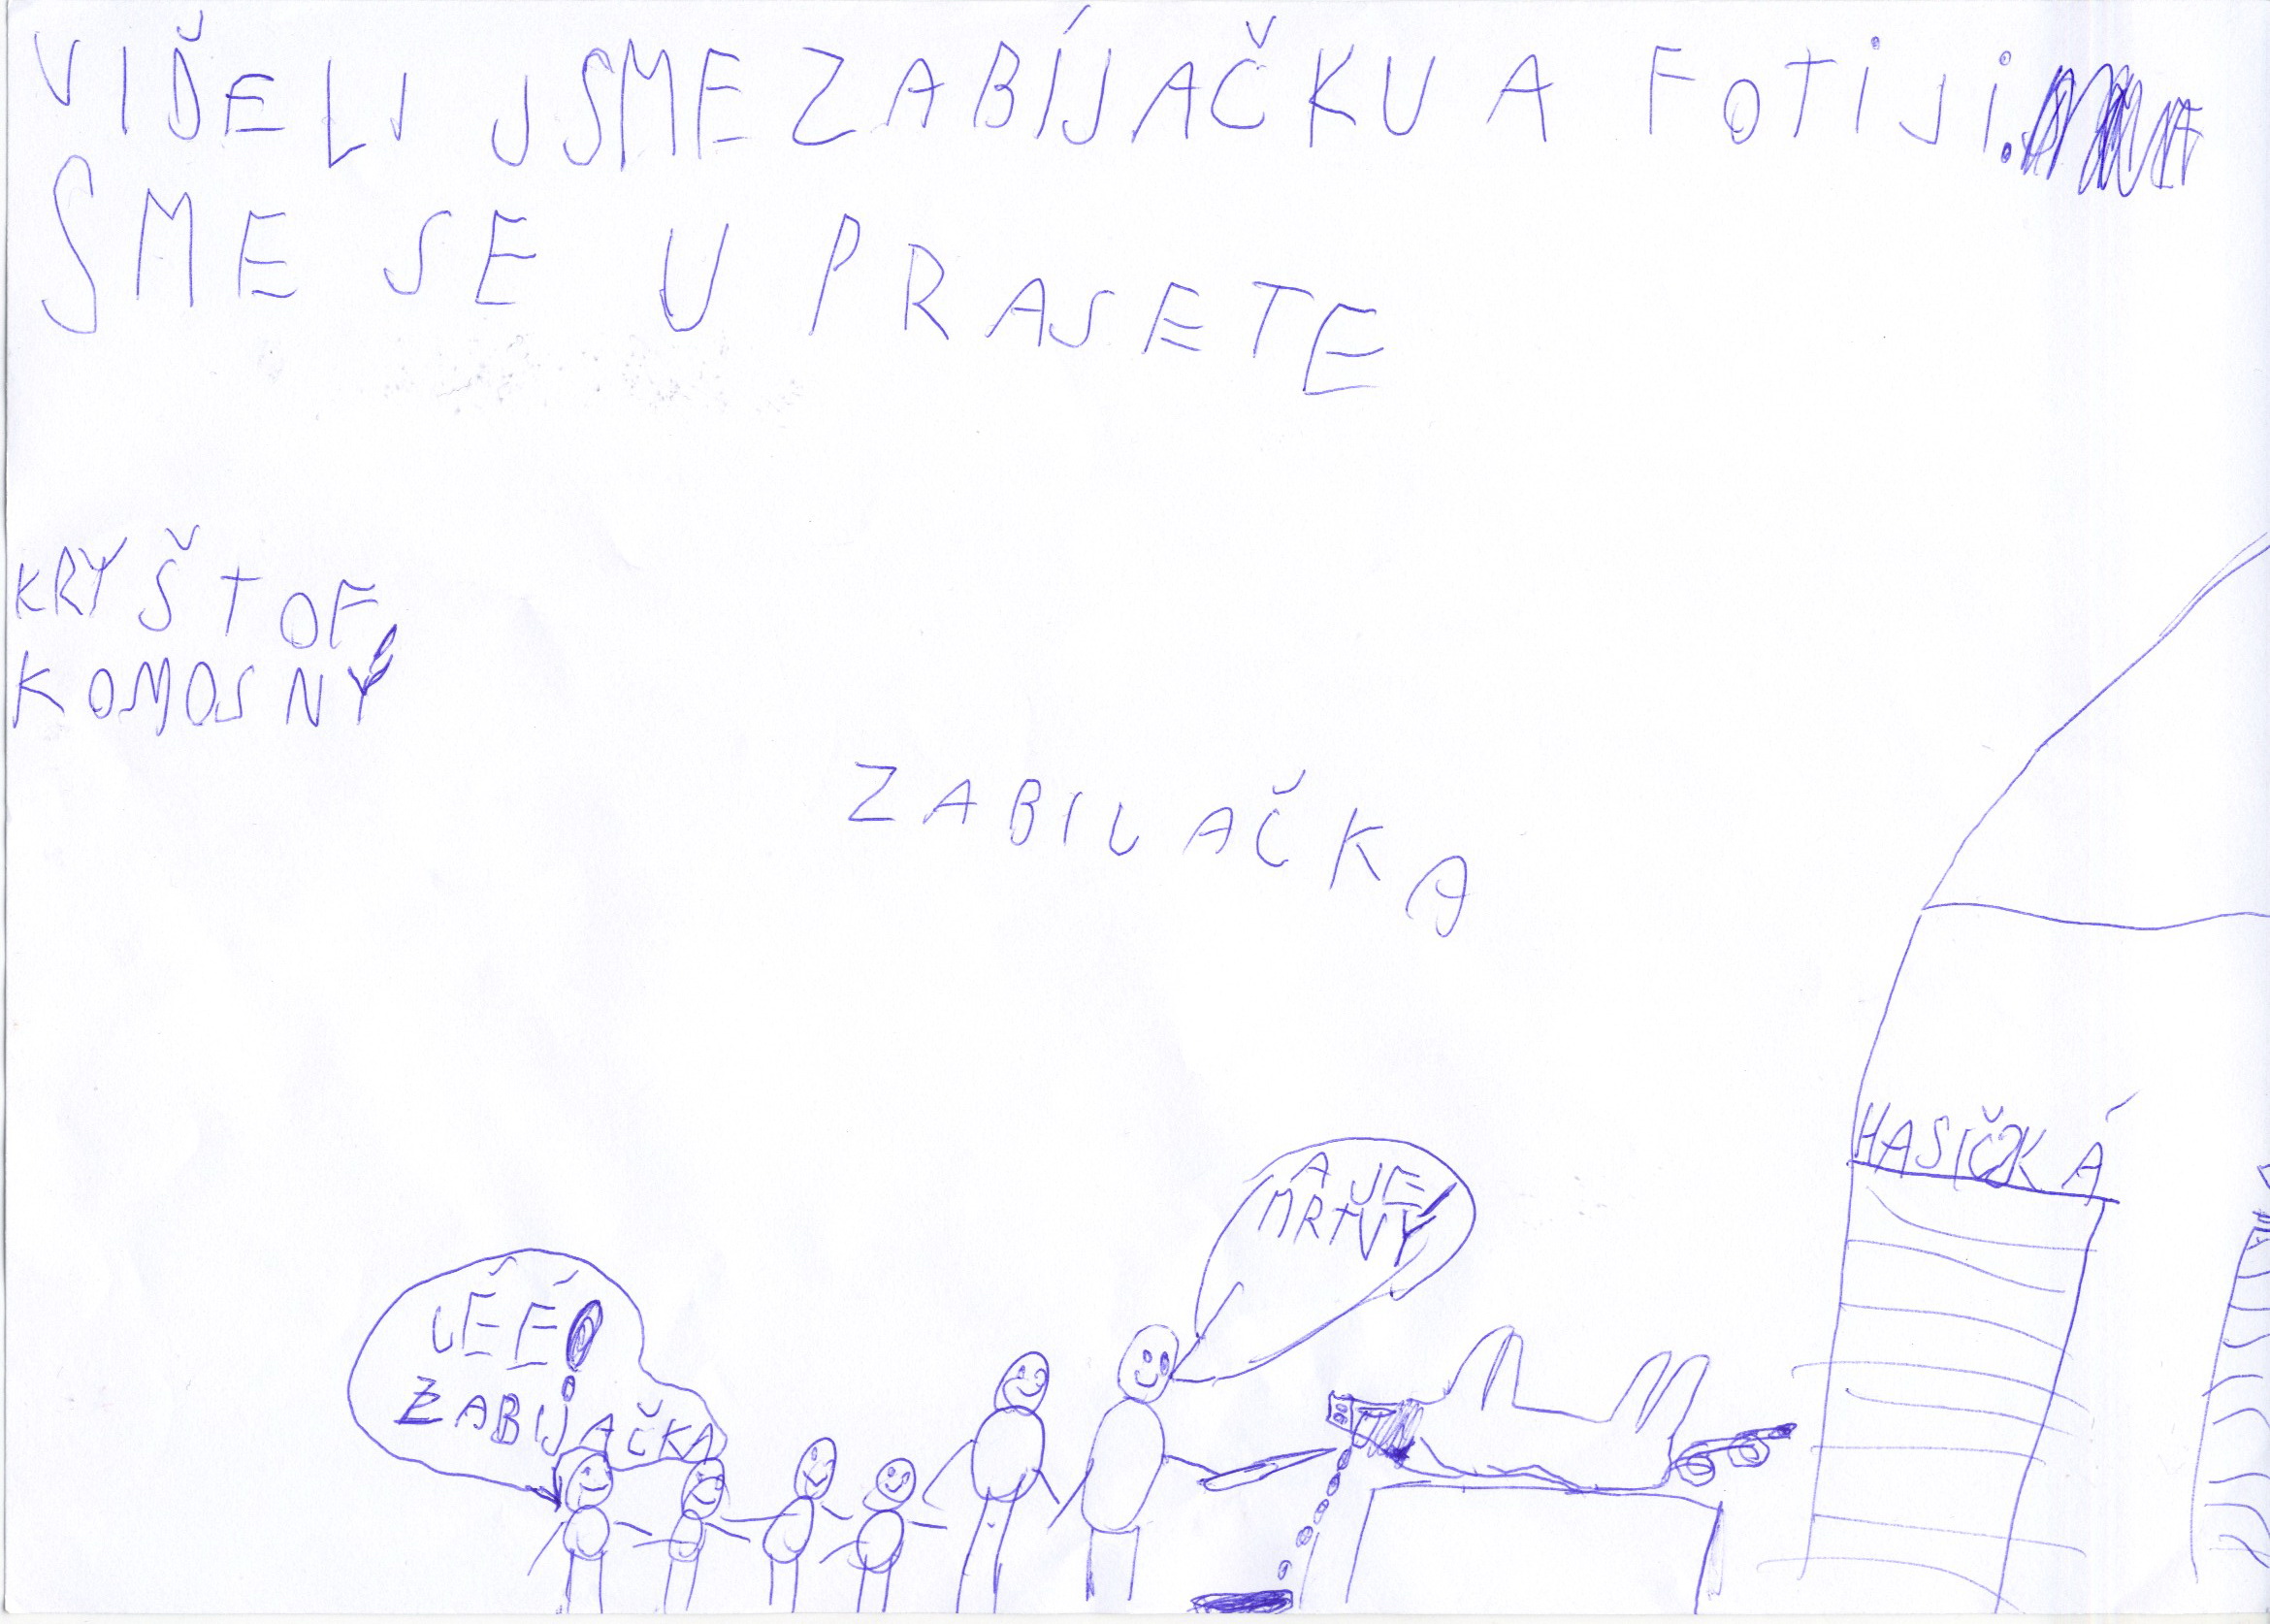 VIĎELI JSME ZABÍJAČKU A FOTiJi.
SME SE U PRASETE
KRYŠTOF
KOMOSNÝ
ZABIJAČKA
HASIČKÁ
A JE
MRTVÝ
JÉÉ!
ZABIJAČKA